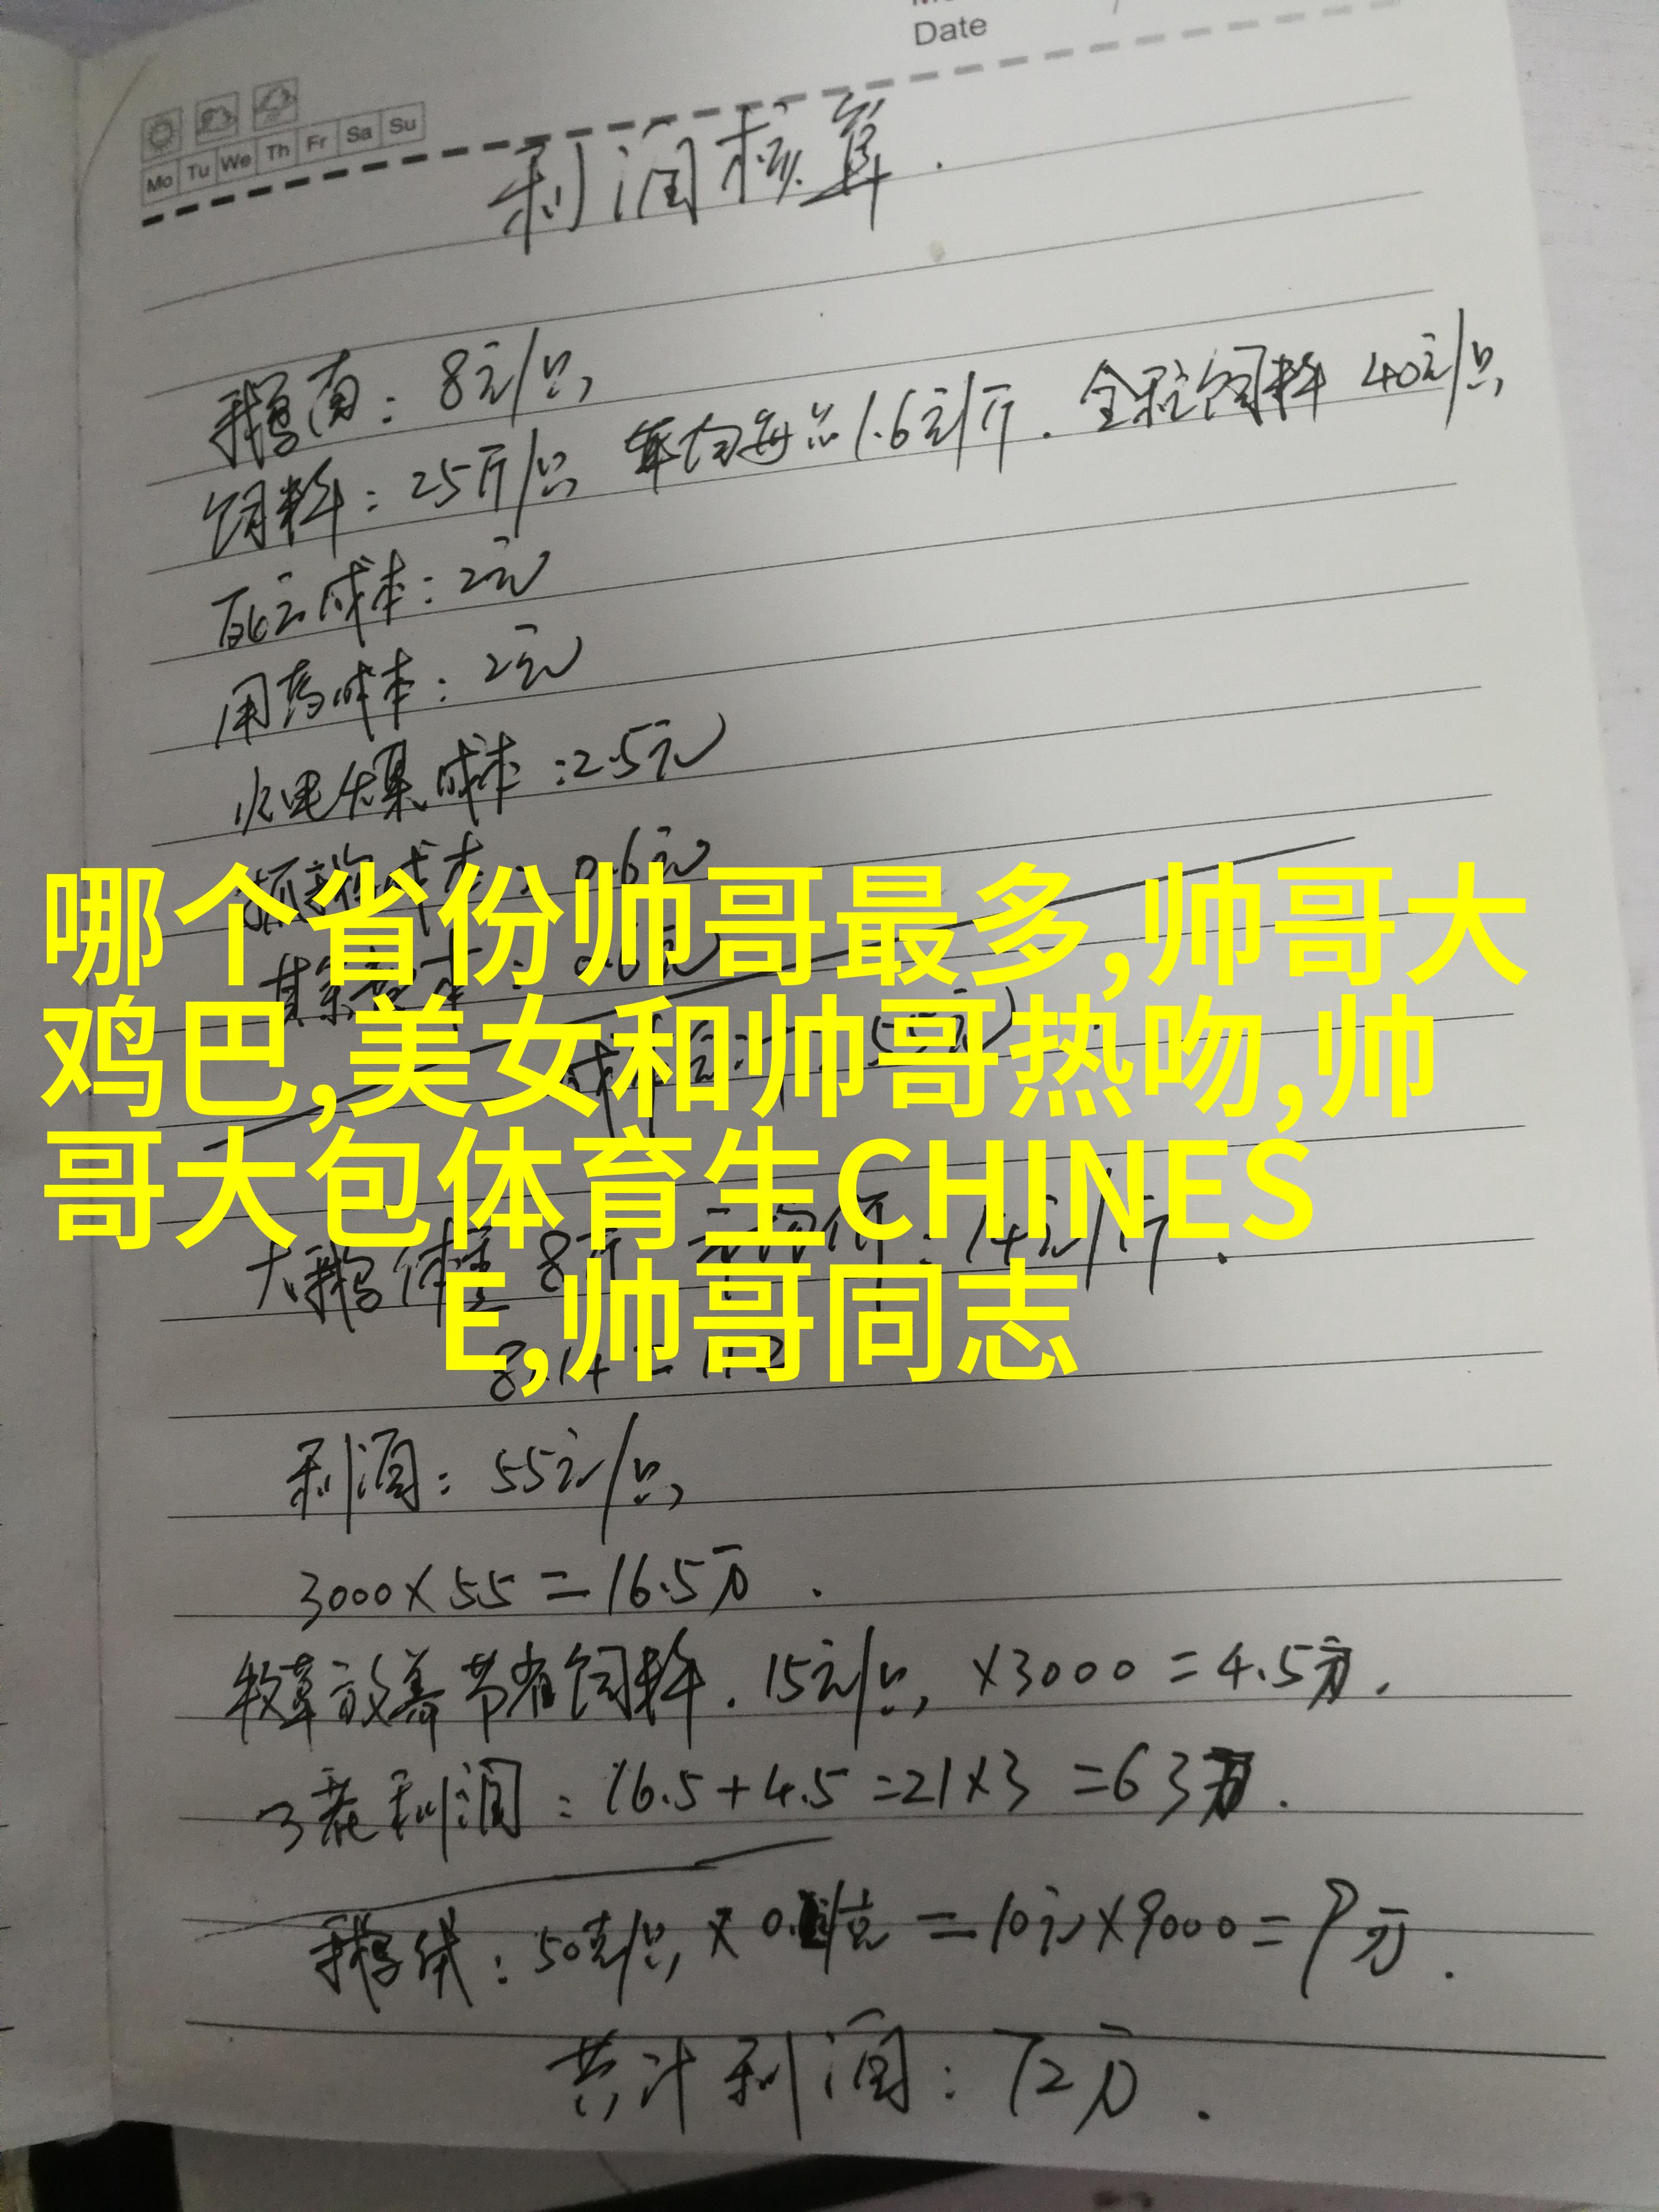 Date
Mo Tu We Th Fr Sa Su
利润核算.
鹅苗: 8元/只,
饲料: 25斤/只, 平均每斤1.6元/斤. 全程饲料 40元/只,
死亡成本: 2元
用药成本: 2元
水电煤成本: 2.5元
0.6元
哪个省份帅哥最多,帅哥大
鸡巴,美女和帅哥热吻,帅
哥大包体育生CHINES
E,帅哥同志
大鹅体重 8斤 : 14元/斤.
利润: 55元/只,
3000×55=16.5万.
牧草放养节省饲料. 15元/只, ×3000=4.5万.
3茬利润: 16.5+4.5=21×3=63万.
鹅绒: 50克/只, × =10元×9000=9万.
共计利润: 72万.